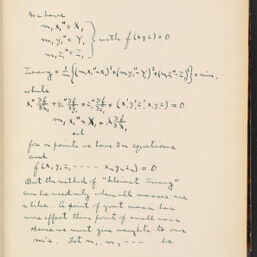 We have
m₁x₁" = X₁
m₁y₁" = Y₁ } with f(xyz) = 0
m₁z₁" = Z₁
Zwang = 1/m {(m₁x₁"-X₁)²+(m₁y₁"-Y₁)²+(m₁z₁"-Z₁)²} = min.
while
x₁" ∂f/∂x₁ + y₁" ∂f/∂y₁ + z₁" ∂f/∂z₁ + (x'y'z', xyz) = 0
m₁x₁" = X₁ + λ ∂f/∂x₁
etc
for n points we have 3n equations
and
f(x₁y₁z₁ ---- xₙyₙzₙ) = 0
But the method of "kleinst Zwang"
can be used only when all masses are
alike. A point of great mass has
more effect than point of small mass
Hence we must give weights to our
m's. Let m₁ m₂ --- be